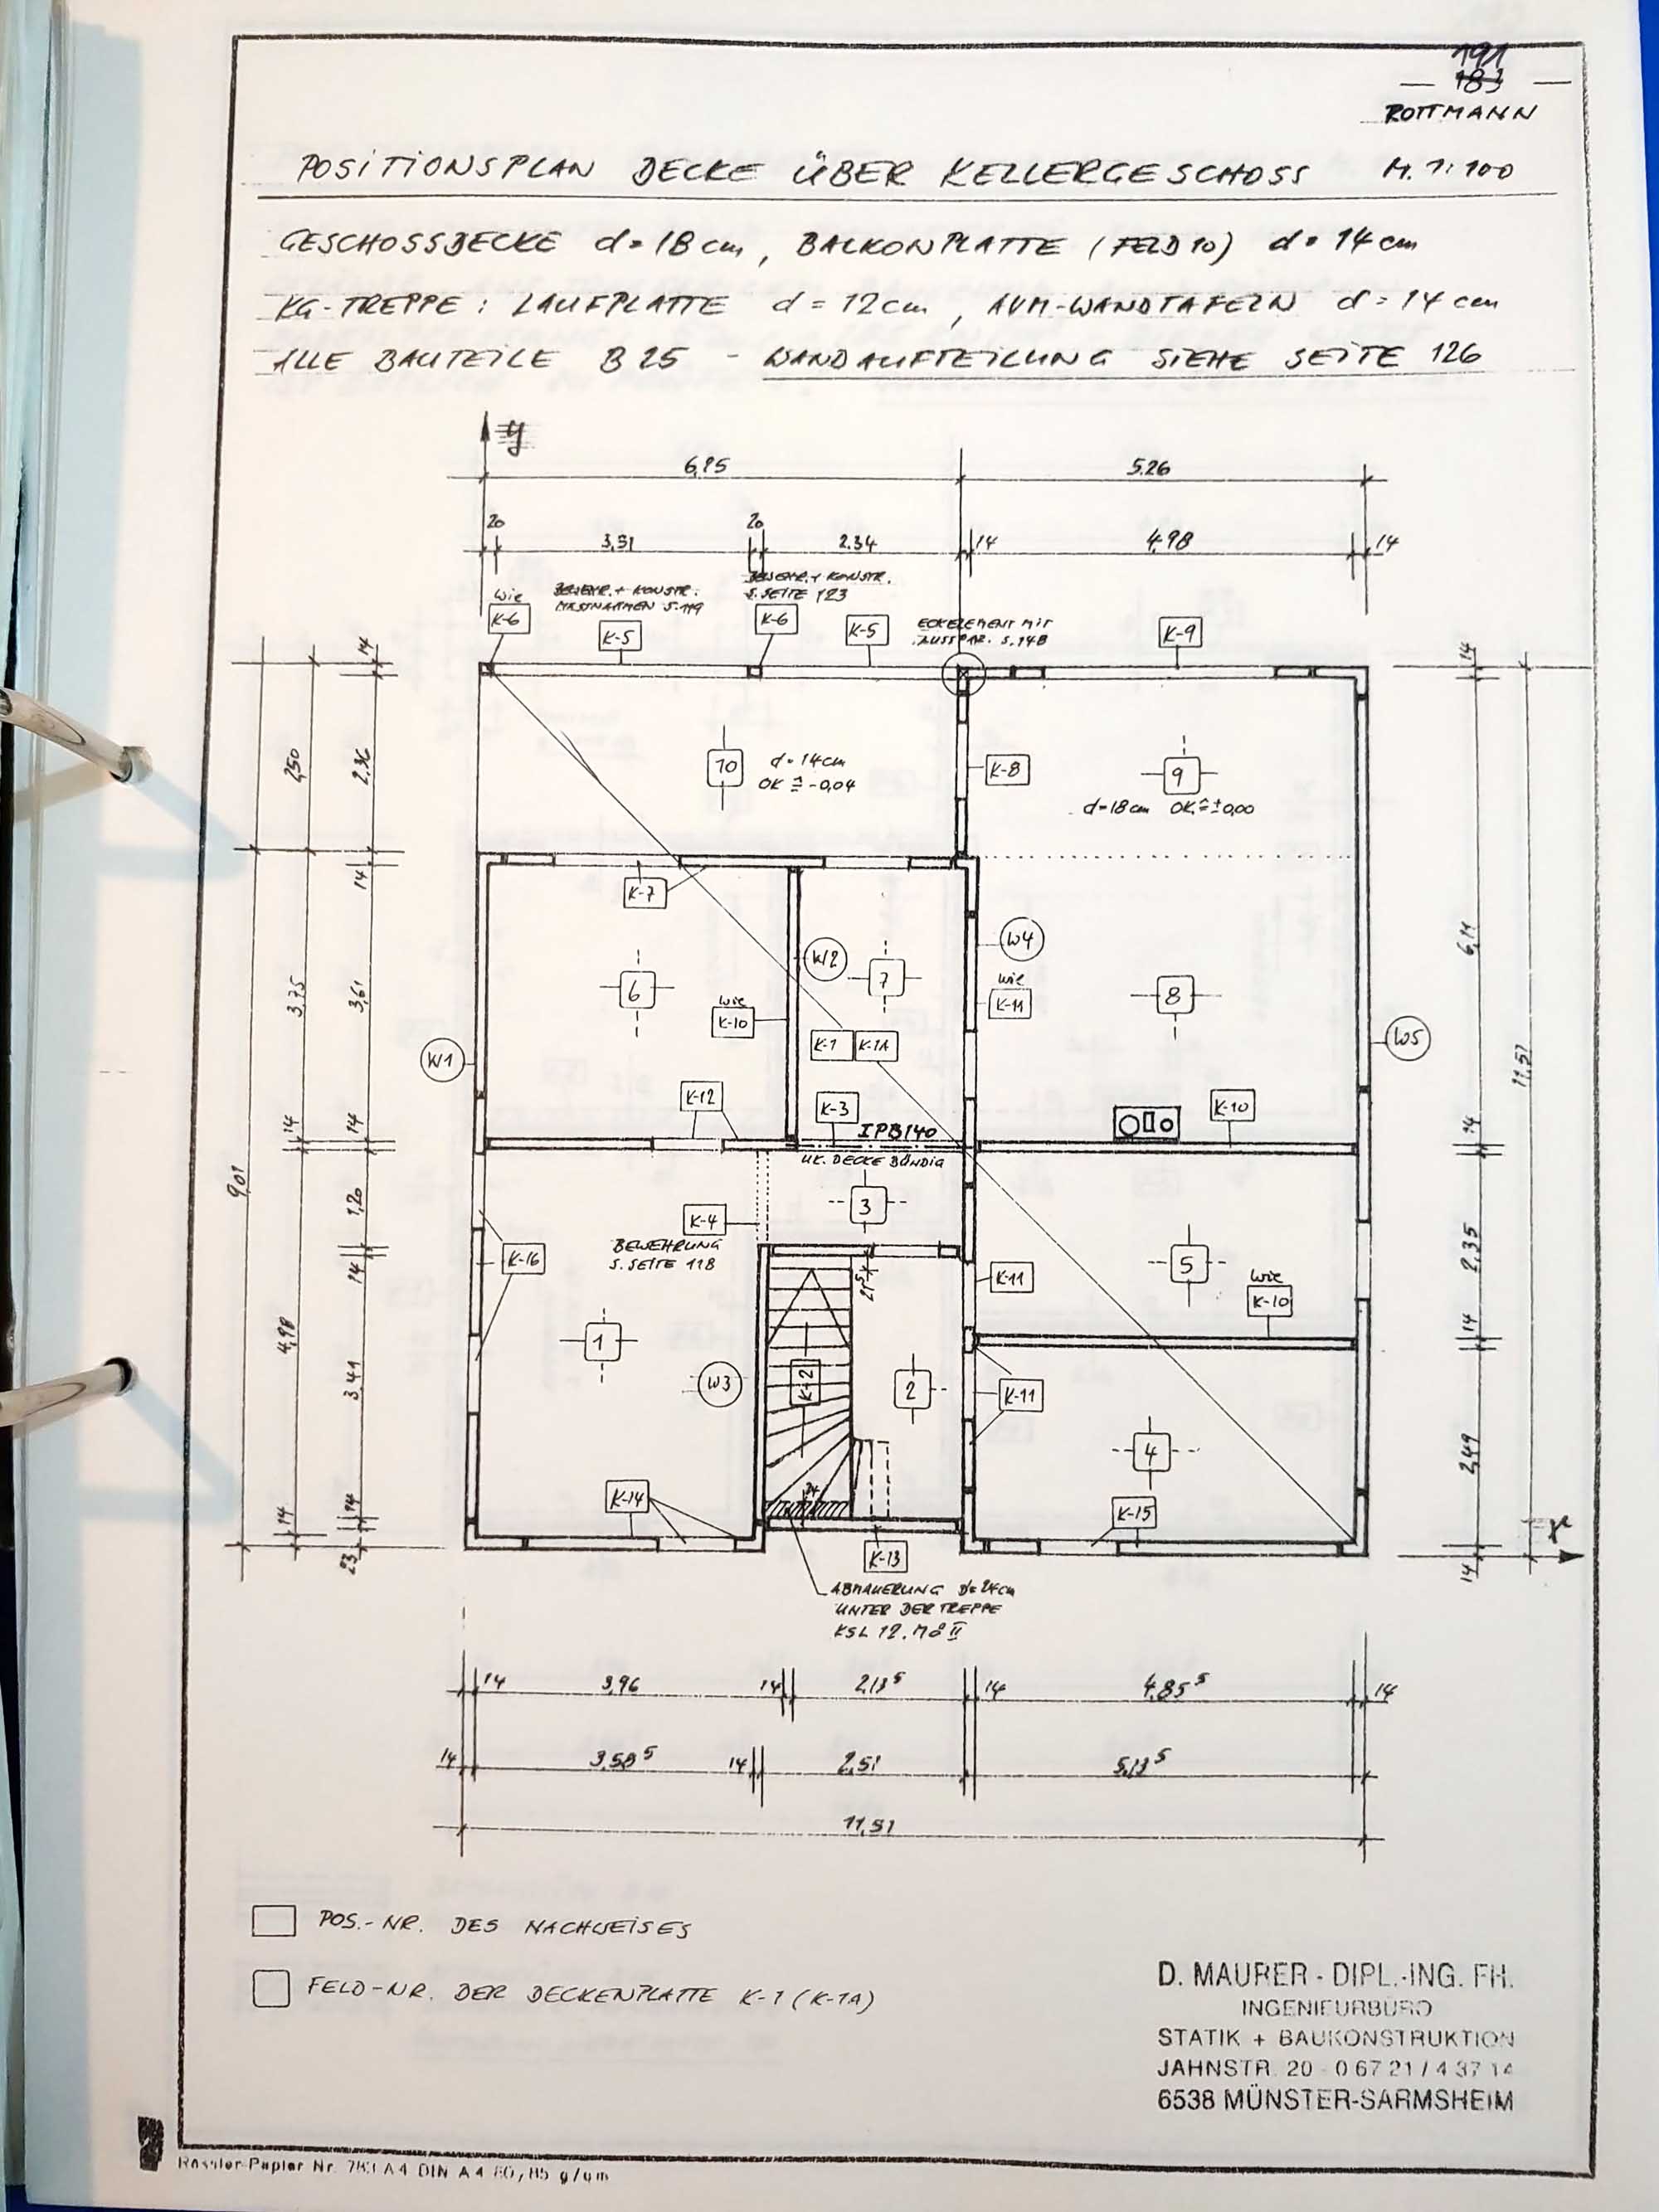 191
— 183 —
ROTTMANN
POSITIONSPLAN DECKE ÜBER KELLERGESCHOSS M. 1:100
GESCHOSSDECKE d=18 cm, BALKONPLATTE (FELD 10) d=14 cm
KG-TREPPE: LAUFPLATTE d=12cm, AVM-WANDTAFELN d=14 cm
ALLE BAUTEILE B 25 - WANDAUFTEILUNG SIEHE SEITE 126
y
5.26
20 20
2.34 14 4,98 14
wie BEWEHR. + KONSTR. BEWEHR. + KONSTR.
MASSNAHMEN S.119 S. SEITE 123
K-6 K-5 K-6 K-5 ECKELEMENT MIT K-9
AUSSPAR. S. 148
14 14
2,50 2.36
10 d=14cm
OK ≙ -0,04
K-8
9
d=18cm OK ≙ ±0,00
14
K-7
W2 7 W4
6 wie K-11 8
3.75 3,61 6,11
wie K-10
K-1 K-1A
W1 W5
11,57
K-12 K-3 K-10
IPB140
UK. DECKE BÜNDIG
14 14 14
9,01 1,20
3
K-4
BEWEHRUNG
S. SEITE 118
K-16 K-11 5 2,35
wie
K-10
14 21⁵ 14
4,98 1
3,41 W3 K-2 2 K-11
4 2,49
K-14 24 K-15
14 14
K-13 x
23 14
ABMAUERUNG d=24cm
UNTER DER TREPPE
KSL 12.
14 3,96 14 2,13⁵ 14 4,85⁵ 14
14 14 2,51 5,13⁵
11,51
POS.-NR. DES NACHWEISES
FELD-NR. DER DECKENPLATTE K-1 (K-1A)
D. MAURER - DIPL.-ING. FH.
INGENIEURBÜRO
STATIK + BAUKONSTRUKTION
JAHNSTR. 20 - 0 67 21 / 4 37 14
6538 MÜNSTER-SARMSHEIM
Rössler-Papier Nr. 783 A4 DIN A 4 80/85 g/qm